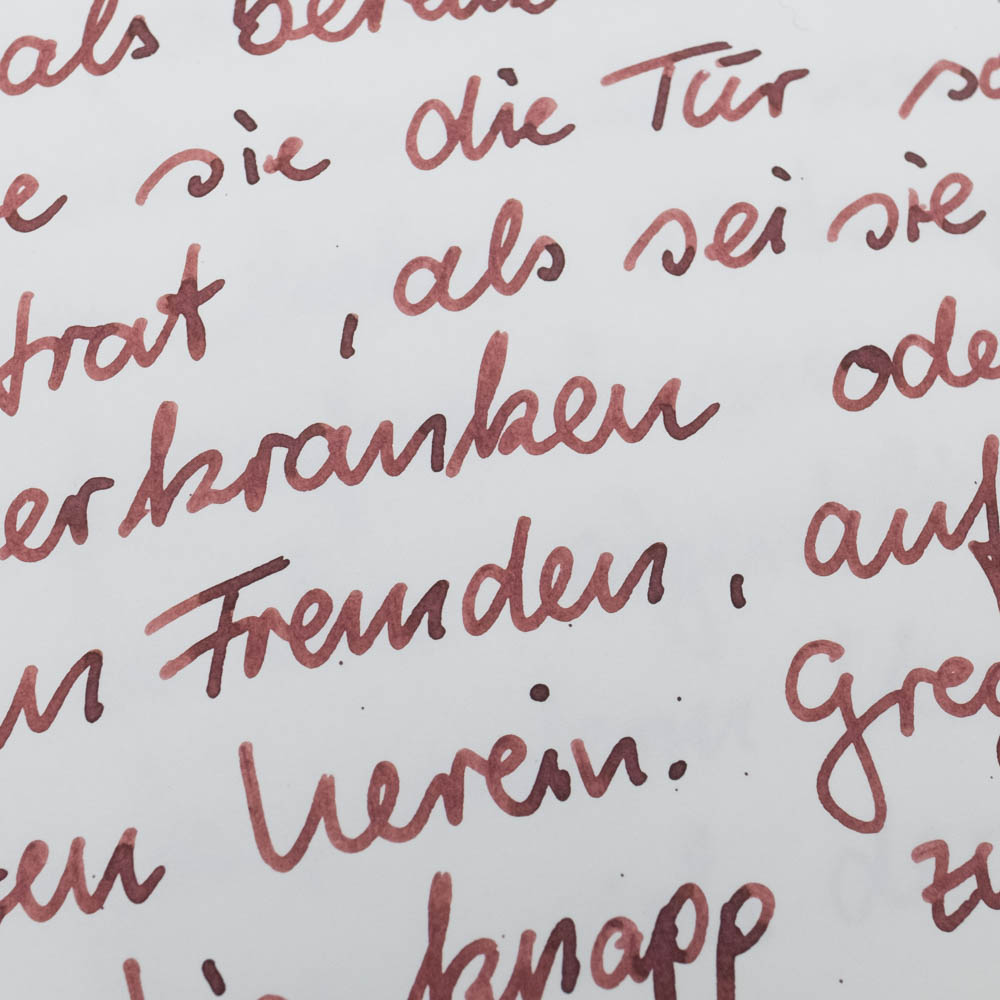 als bereue
e sie die Tür so
trat, als sei sie
erkranken ode
n Fremden, auf
en herein. Greg
knapp zu